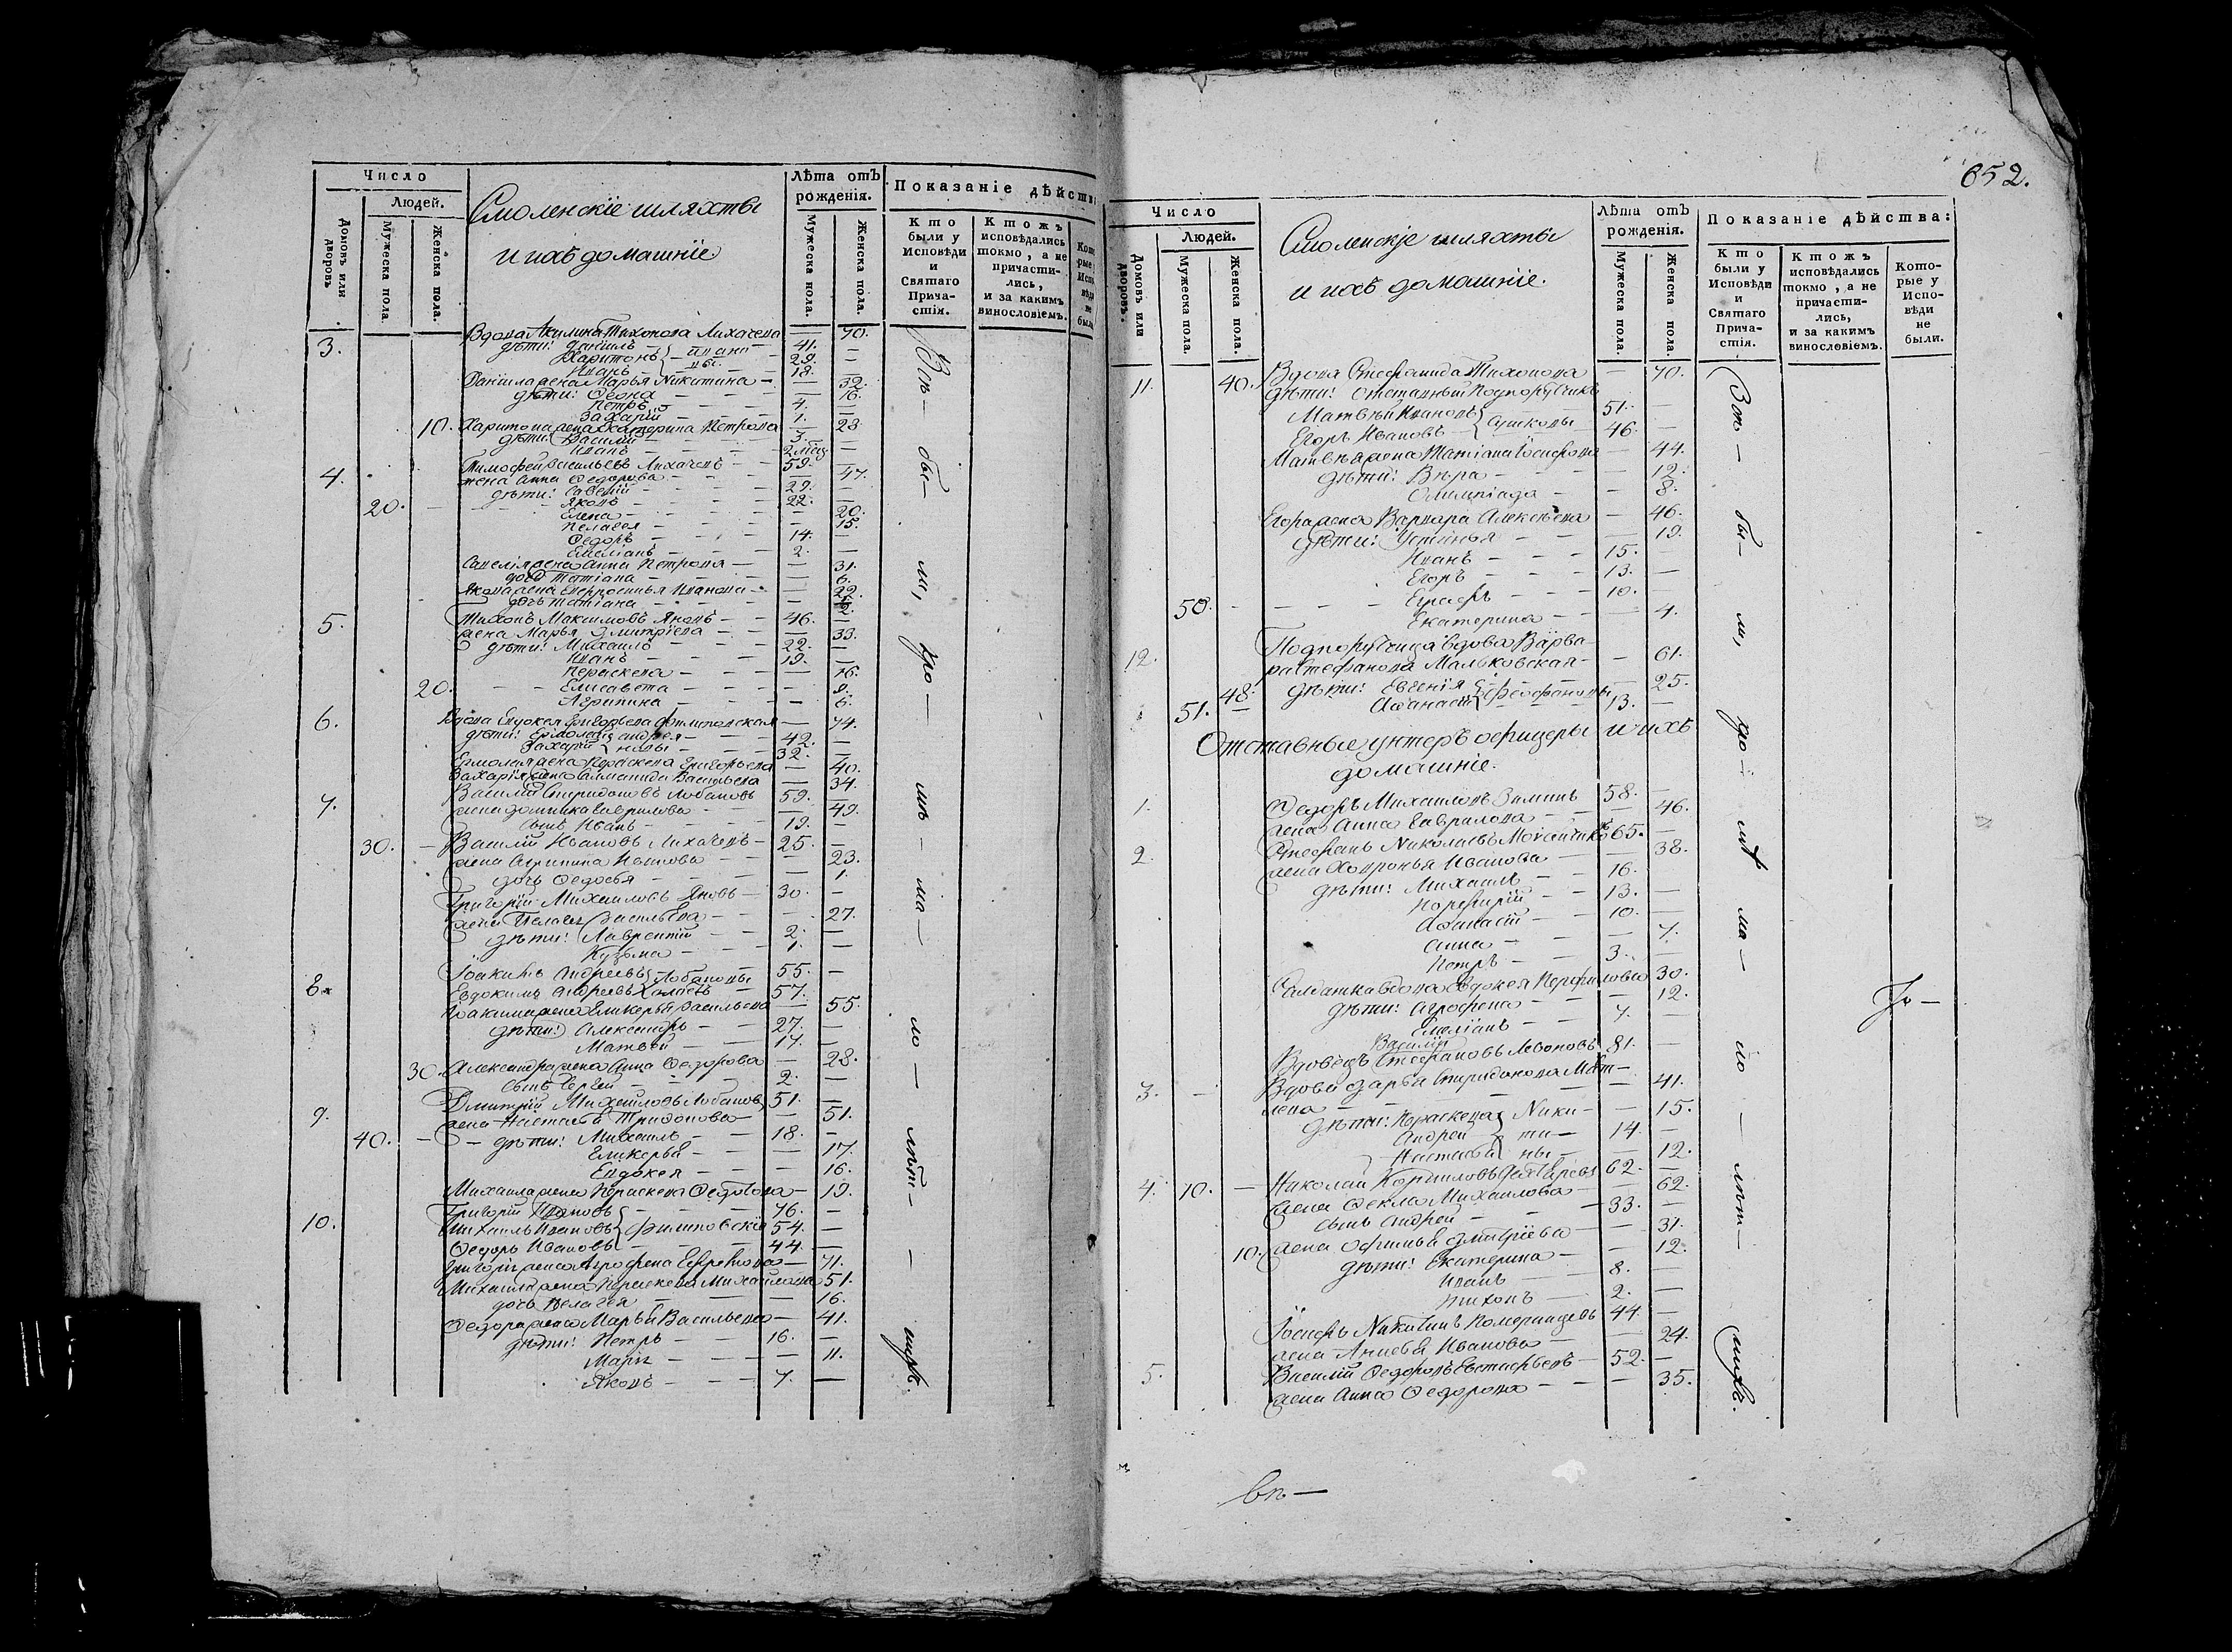 Число
Людей.
Домовъ или дворовъ.
Мужеска пола.
Женска пола.
Смоленскїе шляхты
и ихъ домашнїе
Лѣта отъ рожденїя.
Мужеска пола.
Женска пола.
Показанїе дѣйств
Кто были у Исповѣди и Святаго Причастїя.
Ктожъ исповѣдались токмо, а не причастились, и за какимъ винословїемъ.
3. Вдова Акилина Тихонова Лихачева — 70.
дѣти: Данїилъ 41. —
Харитонъ 29. —
Иванъ 18. —
Данїила жена Марья Никитина — 32.
дѣти: — 16.
Петръ 4. —
Захарїй 1. —
10. Харитона жена Екатерина Петрова — 28
дѣти: Василїй 3. —
Иванъ 2 мсц —
4. Тимофей Васильевъ Лихачевъ 59. —
жена Анна Ѳедорова — 47.
дѣти: Савелїй 29. —
20. Яковъ 22. —
Елена — 20.
Пелагея — 15.
Ѳедоръ 14. —
Емелїанъ 2. —
Савелїя жена Анна Петрова — 31.
дочь Татїана — 6.
Якова жена Евфросинья Иванова — 22.
дочь Татїана — 2.
5. Тихонъ Максимовъ Яновъ 46. —
жена Марья Дмитрїева — 33.
дѣти: Михаилъ 22. —
Иванъ 19. —
Пераскева — 16.
20. Елисавета — 9.
Агрипина — 6.
6. Вдова Евдокея Григорьева — 74.
дѣти: Ермолай 42. —
Захарїй 32. —
Ермолая жена Пераскева Григорьева — 40.
Захарїя жена Саломанида Васильева — 34.
7. Василїй Спиридоновъ Лобановъ 59. —
жена Домника Гаврилова — 49.
сынъ Иванъ 19. —
30. Василїй Ивановъ Лихачевъ 25. —
жена Агрипина Иванова — 23.
дочь Ѳедосья — 1.
Григорїй Михаиловъ Яновъ 30. —
жена Пелагея Васильева — 27.
дѣти: Лаврентїй 2. —
Кузьма 1. —
8. Їоакимъ Андреевъ Лобановы 55. —
Евдокимъ Андреевъ холостъ 57. —
Їоакима жена Гликерья Васильева — 55.
дѣти: Александръ 27. —
Матвей 17. —
30. Александра жена Анна Ѳедорова — 28.
сынъ Сергей 2. —
9. Дмитрїй Михайловъ Лобановъ 51. —
жена Настасья Тридонова — 51.
40. дѣти: Михаилъ 18. —
Гликерья — 17.
Евдокея — 16.
Михаила жена Пераскева Ѳедотова — 19.
10. Григорїй Ивановъ 76. —
Михаилъ Ивановъ 54. —
Ѳедоръ Ивановъ 44. —
Григорїя жена Агрофена Ефремова — 71.
Михаила жена Пераскева Михайлова 51.
дочь Пелагея — 16.
Ѳедора жена Марья Васильева — 41.
дѣти: Петръ 16. —
Марїя — 11.
Яковъ 7. —
652.
Число
Людей.
Домовъ или дворовъ.
Мужеска пола.
Женска пола.
Смоленскїе шляхты
и ихъ домашнїе.
Лѣта отъ рожденїя.
Мужеска пола.
Женска пола.
Показанїе дѣйства:
Кто были у Исповѣди и Святаго Причастїя.
Ктожъ исповѣдались токмо, а не причастились, и за какимъ винословїемъ.
Которые у Исповѣди не были.
11. 40. Вдова Стефанида Тихонова — 70.
дѣти: отставный Подпорутчикъ
Матвѣй Ивановъ 51. —
Егоръ Ивановъ 46. —
Матвѣя жена Татїана Їосифова — 44.
дѣти: Вѣра — 12.
Олимпїада — 8.
Егора жена Варвара Алексѣева — 46.
дѣти: Устинья — 19.
Иванъ 15. —
Егоръ 13. —
50. Еграфъ 10. —
Екатерина — 4.
12. Подпорутчица вдова Варва-
ра Стефанова Мальковская — 61.
48. дѣти: Евгенїя — 25.
51. Аѳанасїй 13. —
Отставные унтеръ офицеры и ихъ
домашнїе.
1. Ѳедоръ Михаиловъ Зиминъ 58. —
жена Анна Гаврилова — 46.
2. Стефанъ Николаевъ 65. —
жена Ховронья Иванова — 38.
дѣти: Михаилъ 16. —
Порфирїй 13. —
Аѳанасїй 10. —
Анна — 7.
Петръ 3. —
Салдатка вдова Евдокея Перфилова 30.
дѣти: Агрофена — 12.
Емелїанъ 7. —
Василїй
Вдовецъ Стефановъ Леоновъ 81. —
3. Вдова Дарья Спиридонова Мат-
веева — 41.
дѣти: Пераскева — 15.
Андрей 14. —
Настасья — 12.
4. 10. Николай Корниловъ 62. —
жена Ѳекла Михаилова — 62.
сынъ Андрей 33. —
10. жена Офимья Дмитрїева — 31.
дѣти: Екатерина — 12.
Иванъ 8. —
Тихонъ 2. —
Їосифъ Никитинъ 44. —
жена Анисья Иванова — 24.
5. Василїй Ѳедоровъ Евстафьевъ 52. —
жена Анна Ѳедорова — 35.